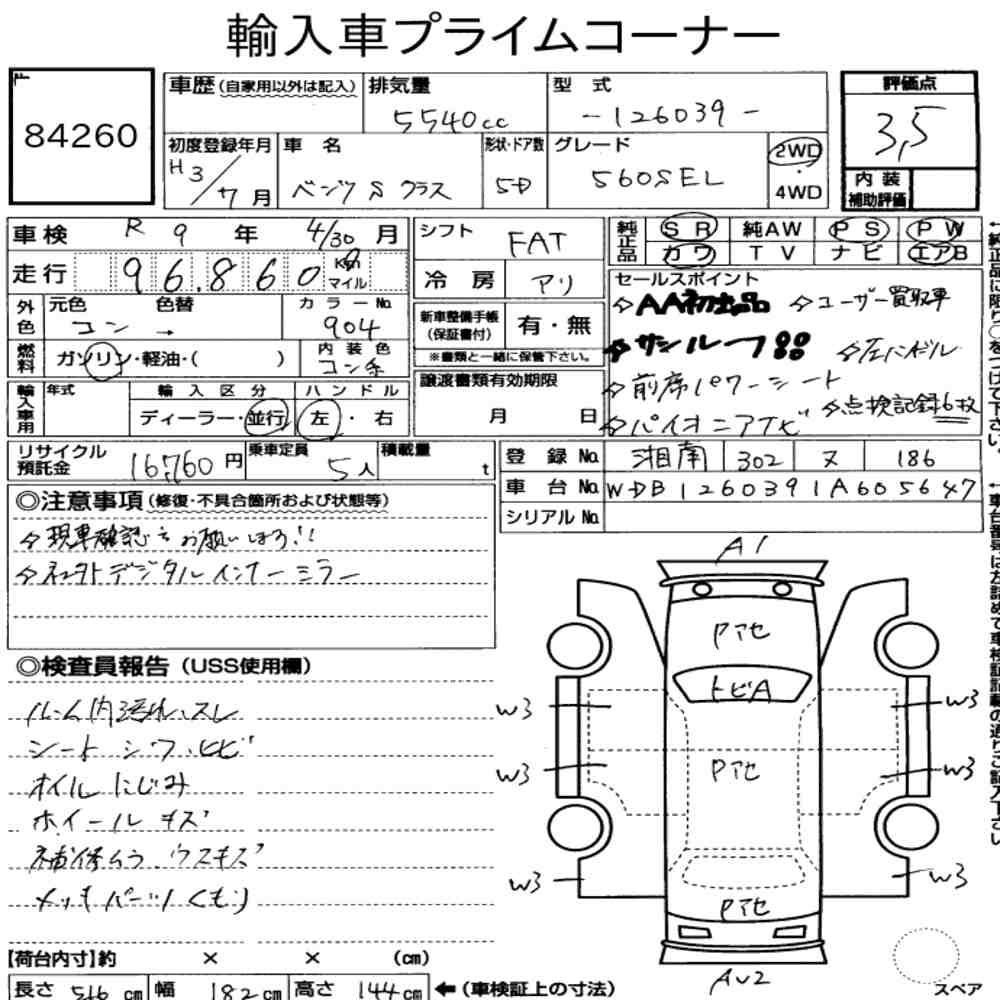 輸入車プライムコーナー
84260
車歴(自家用以外は記入) 排気量 5540cc 型式 -126039- 評価点 3,5
初度登録年月 H3/7月 車名 ベンツSクラス 形状・ドア数 5D グレード 560SEL 2WD 4WD
内装補助評価
車検 R 9 年 4/30 月 シフト FAT 純正品 SR 純AW PS PW
カワ TV ナビ エアB
走行 96,860 Km マイル 冷房 アリ
セールスポイント
外色 元色 コン 色替 → カラーNo. 904
☆AA初出品 ☆ユーザー買取車
新車整備手帳(保証書付) 有・無
☆サンルーフ ☆左ハンドル
※書類と一緒に保管下さい。
燃料 ガソリン・軽油・( ) 内装色 コン系
☆前席パワーシート
輸入車用 年式 輸入区分 ディーラー・並行 ハンドル 左・右
譲渡書類有効期限 月 日
☆点検記録6枚
☆パイオニアナビ
リサイクル預託金 16,760円 乗車定員 5人 積載量 t
登録No. 湘南 302 ヌ 186
車台No. WDB1260391A605647
シリアルNo.
◎注意事項(修復・不具合箇所および状態等)
☆現車確認をお願いします!!
☆社外デジタルインナーミラー
◎検査員報告(USS使用欄)
ルーム内汚れ、スレ
シートシワ、ヒビ
オイルにじみ
ホイールキズ
補修ムラ、ウスキズ
メッキパーツくもり
A1
Pアセ
トビA
Pアセ
Pアセ
AU2
W3
W3
W3
W3
W3
W3
スペア
【荷台内寸】約 × × (cm)
長さ 516 cm 幅 182 cm 高さ 144 cm ←(車検証上の寸法)
↑純正品に限り○をつけて下さい。
↑車台番号は左詰めで車検証記載の通りご記入下さい